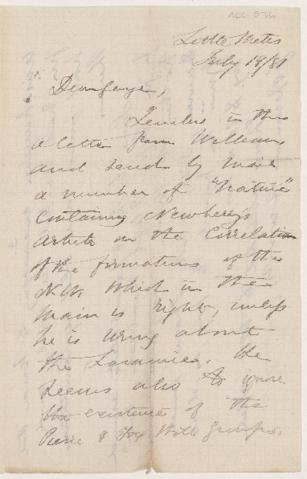 Little Metis
July 19/81
Dear George,
I enclose in this
a letter from William
and send by mail
a number of "Nature"
containing Newberry's
article on the Correlation
of the formations of the
N.W. which in the
main is right, unless
he is wrong about
the Laramie. He
seems also to ignore
the existence of the
Pierre & Fox Hill Groups.